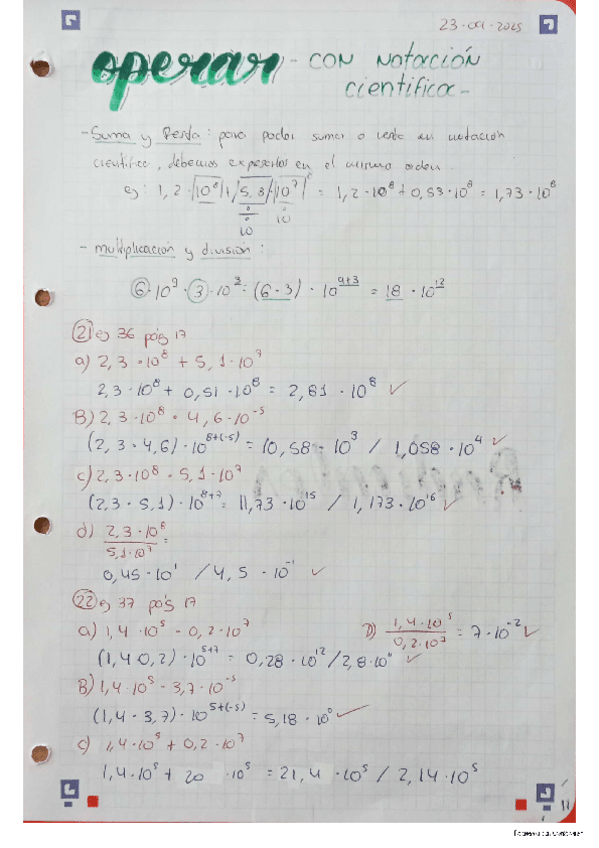 23-09-2025
operar - con notación
científica -
- Suma y Resta: para poder sumar o restar en notación
científica, debemos expresarlos en el mismo orden.
ej: 1,2·10⁸ + 5,3·10⁷ = 1,2·10⁸ + 0,53·10⁸ = 1,73·10⁸
÷ ÷
10 10
- multiplicación y división:
6·10⁹·3·10³ = (6·3)·10⁹⁺³ = 18·10¹²
21 ej 36 pág 17
a) 2,3·10⁸ + 5,1·10⁷
2,3·10⁸ + 0,51·10⁸ = 2,81·10⁸ ✓
B) 2,3·10⁸·4,6·10⁻⁵
(2,3·4,6)·10⁸⁺⁽⁻⁵⁾ = 10,58·10³ / 1,058·10⁴ ✓
c) 2,3·10⁸·5,1·10⁷
(2,3·5,1)·10⁸⁺⁷ = 11,73·10¹⁵ / 1,173·10¹⁶ ✓
d) 2,3·10⁸ / 5,1·10⁷ =
0,45·10¹ / 4,5·10⁻¹ ✓
22 ej 37 pág 17
a) 1,4·10⁵·0,2·10⁷
(1,4·0,2)·10⁵⁺⁷ = 0,28·10¹² / 2,8·10 ✓
D) 1,4·10⁵ / 0,2·10⁷ = 7·10⁻² ✓
B) 1,4·10⁵·3,7·10⁻⁵
(1,4·3,7)·10⁵⁺⁽⁻⁵⁾ = 5,18·10⁰ ✓
c) 1,4·10⁵ + 0,2·10⁷
1,4·10⁵ + 20·10⁵ = 21,4·10⁵ / 2,14·10⁵